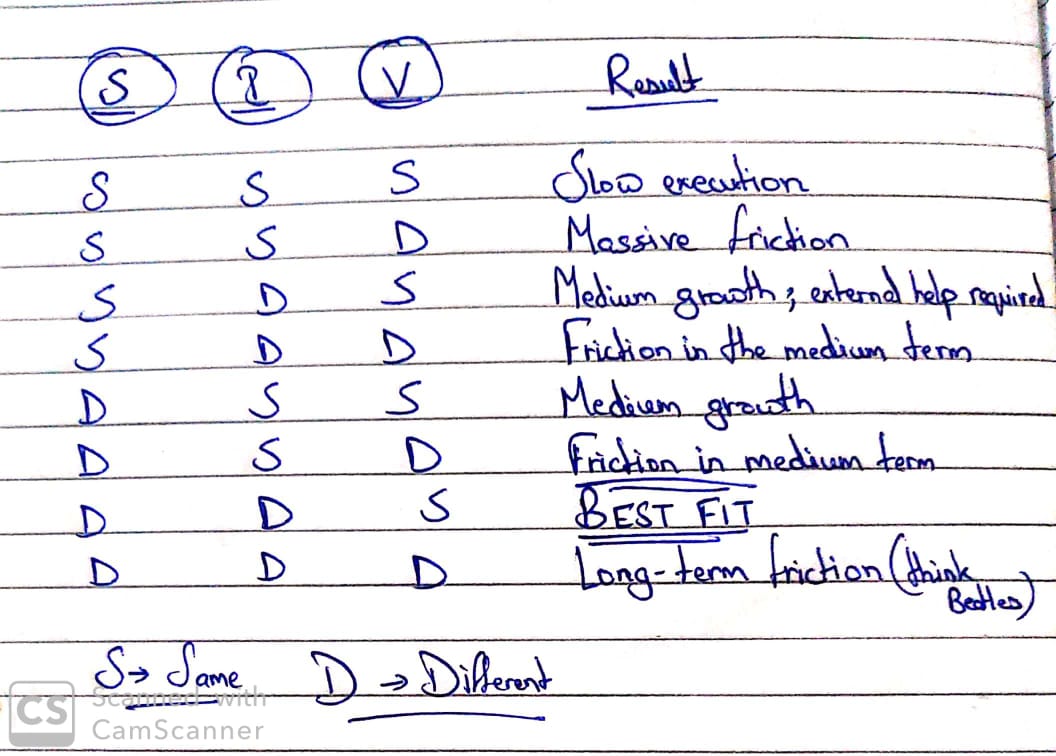 S P V Result
S S S Slow execution
S S D Massive friction
S D S Medium growth; external help required
S D D Friction in the medium term
D S S Medium growth
D S D Friction in medium term
D D S BEST FIT
D D D Long-term friction (think
Beatles)
S→ Same D → Different
CS Scanned with
CamScanner